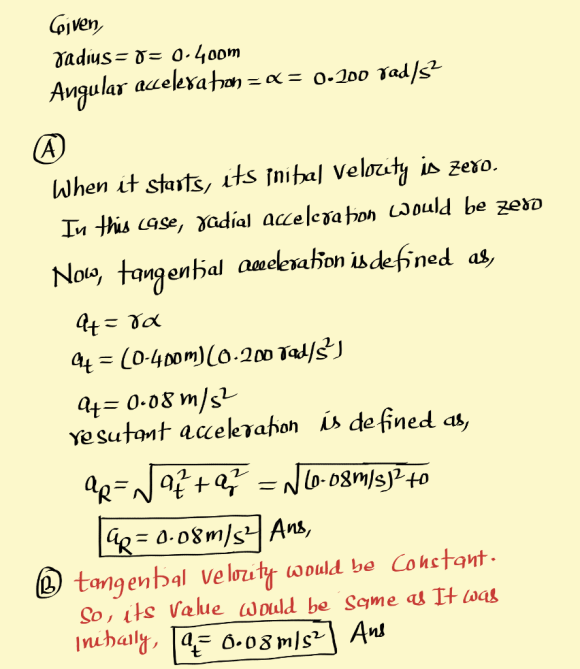 Given,
radius = r = 0.400m
Angular acceleration = α = 0.200 rad/s²
A
When it starts, its initial velocity is zero.
In this case, radial acceleration would be zero
Now, tangential acceleration is defined as,
at = rα
at = (0.400m)(0.200 rad/s²)
at = 0.08 m/s²
resutant acceleration is defined as,
aR = √at² + ar² = √(0.08m/s)² + 0
aR = 0.08m/s² Ans,
B tangential velocity would be constant.
So, its value would be same as It was
Initially, at = 0.08m/s² Ans